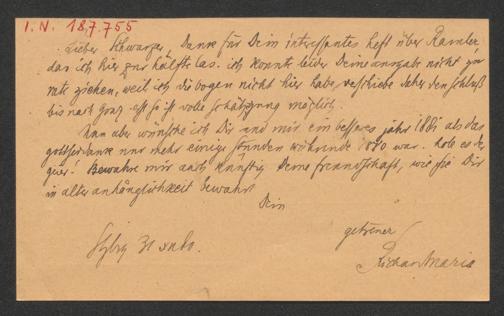 I. N. 187.755
Lieber Schwarzer, Dank für Dein interessantes heft über Ramler,
das ich hier zur hälfte las. ich konnte leider Deine ausgabe nicht zu
rate ziehen, weil ich die bogen nicht hier habe, verschiebe daher den schluß
bis nach Graz. erst so ist volle schätzung möglich.
Nun aber wünsche ich Dir und mir ein besseres jahr 1881 als das
gottseidank nur mehr einige stunden währende 1880 war. hole es der
geier! Bewahre mir auch künftig Deine freundschaft, wie sie Dir
in alter anhänglichkeit bewahrt
Dein
getreuer
31